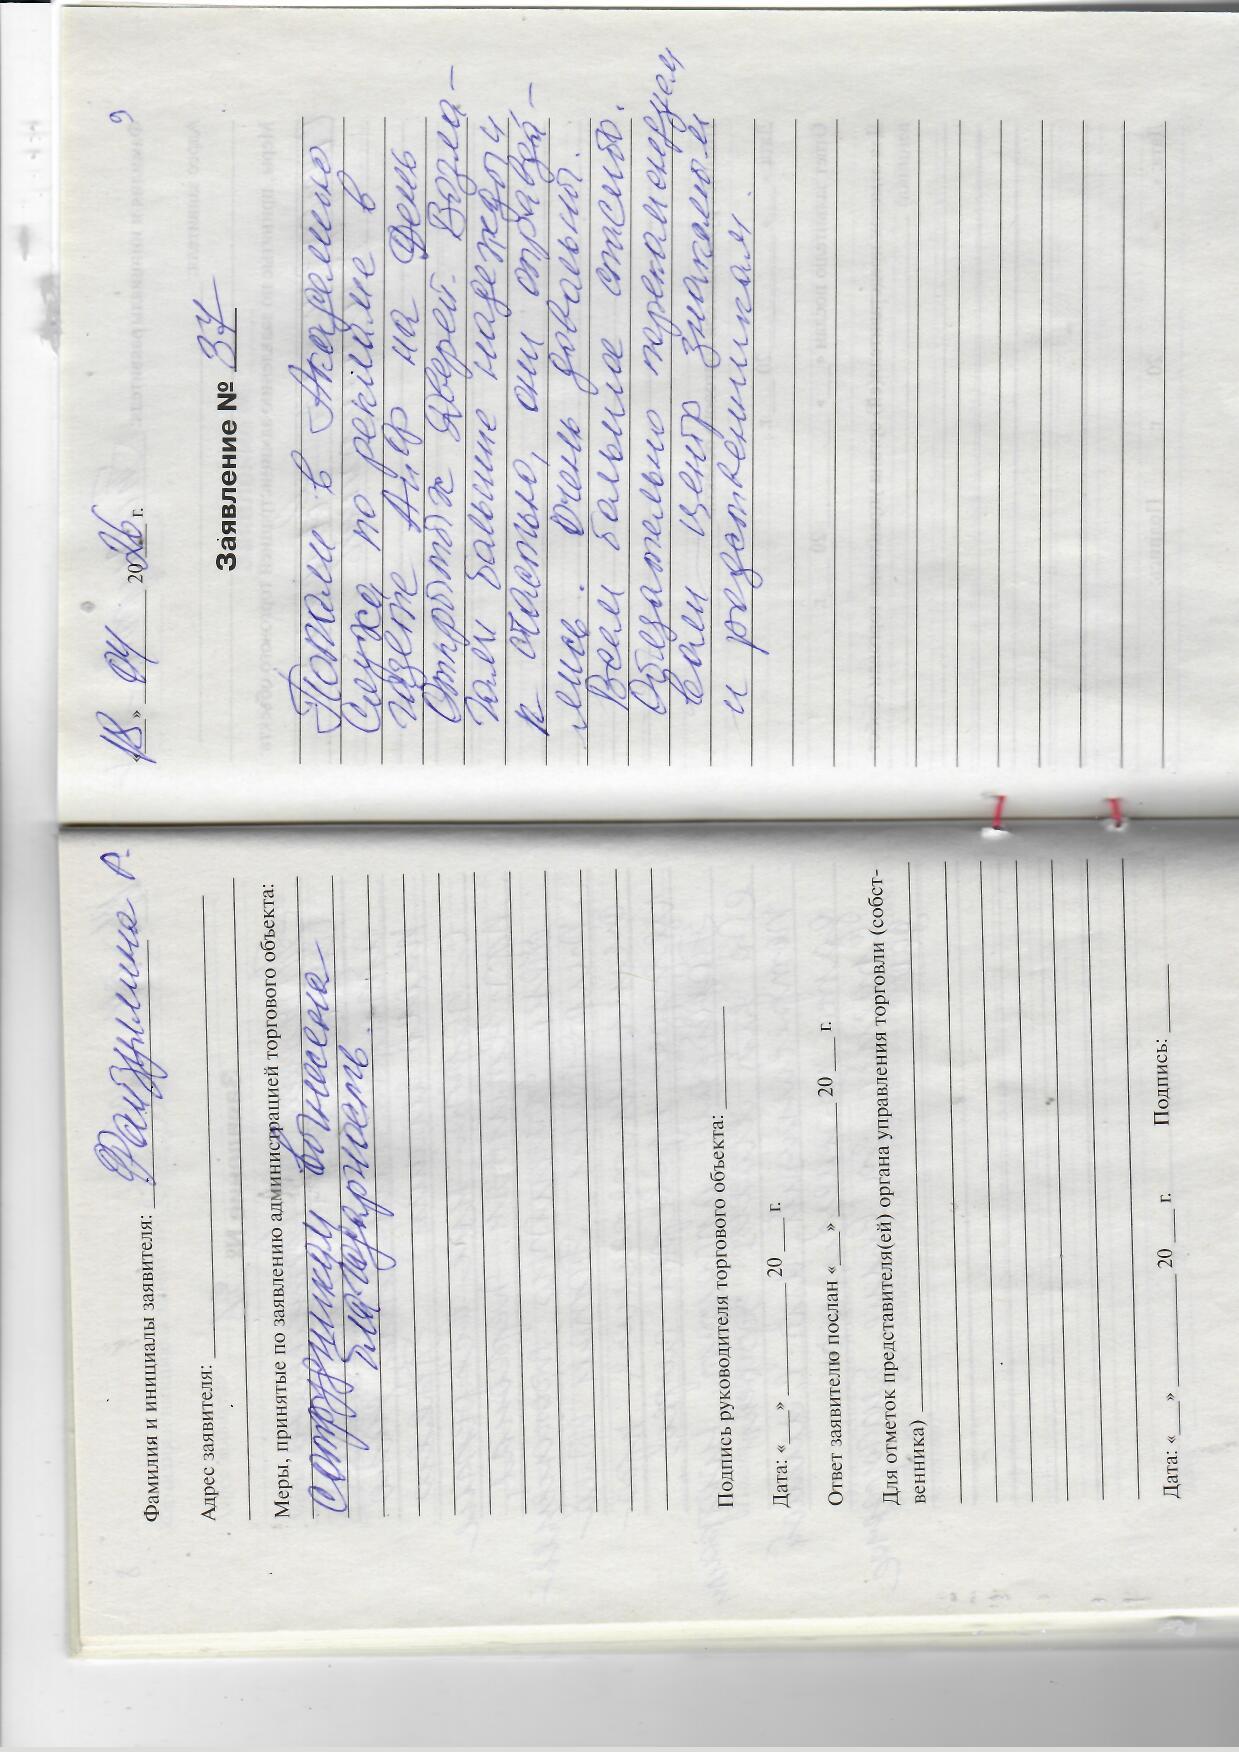 Фамилия и инициалы заявителя:
Адрес заявителя:
Меры, принятые по заявлению администрацией торгового объекта:
Сотрудникам вынесена
благодарность.
Подпись руководителя торгового объекта:
Дата: «___» ________ 20 ___ г.
Ответ заявителю послан «___» ________ 20 ___ г.
Для отметок представителя(ей) органа управления торговли (собст-
венника)
Дата: «___» ________ 20 ___ г. Подпись:
9
«18» 04 2026 г.
Заявление № 37
Попали в Академию
Слуха по рекламе в
газете АиФ на День
Открытых Дверей. Возла-
гали большие надежды и
к счастью, они оправда-
лись. Очень довольны.
Всем большое спасибо.
Обязательно порекомендуем
ваш центр знакомым
и родственникам.